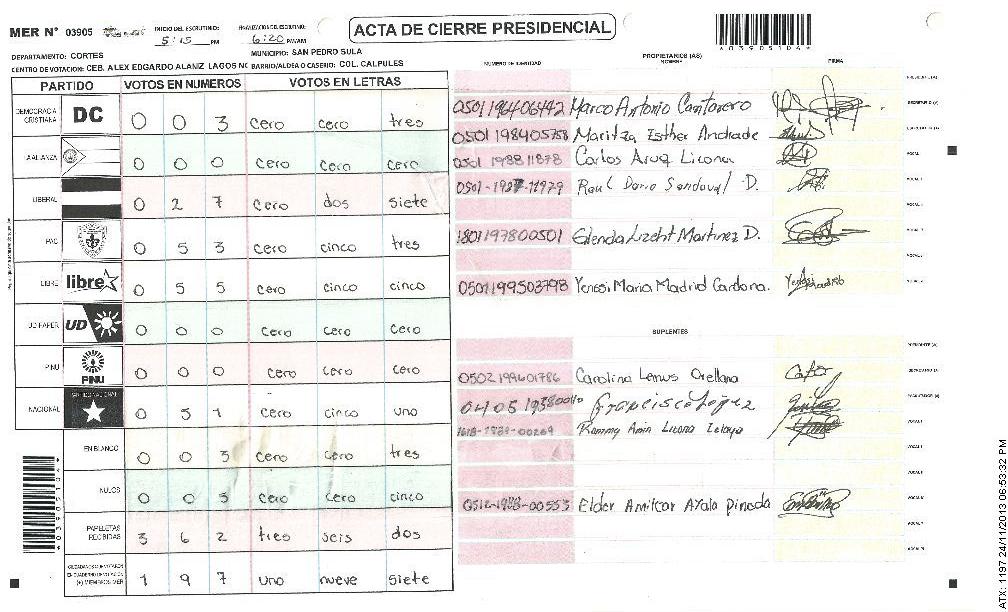 MER N° 03905 INICIO DEL ESCRUTINIO: 5:15 PM 6:20 PM/AM ACTA DE CIERRE PRESIDENCIAL
A03905104*
DEPARTAMENTO: CORTES MUNICIPIO: SAN PEDRO SULA
CENTRO DE VOTACION: CEB. ALEX EDGARDO ALANIZ LAGOS NO BARRIO/ALDEA O CASERIO: COL. CALPULES
NUMERO DE IDENTIDAD PROPIETARIOS (AS) NOMBRE FIRMA
PARTIDO VOTOS EN NUMEROS VOTOS EN LETRAS
DEMOCRACIA CRISTIANA DC 0 0 3 cero cero tres
LA ALIANZA 0 0 0 cero cero cero
LIBERAL 0 2 7 cero dos siete
PAC 0 5 3 cero cinco tres
LIBRE libre 0 5 5 cero cinco cinco
UD FAPER UD 0 0 0 cero cero cero
PINU PINU 0 0 0 cero cero cero
NACIONAL 0 5 1 cero cinco uno
EN BLANCO 0 0 3 cero cero tres
NULOS 0 0 5 cero cero cinco
PAPELETAS RECIBIDAS 3 6 2 tres seis dos
CIUDADANOS QUE VOTARON EN CUADERNO DE VOTACION (+) MIEMBROS MER 1 9 7 uno nueve siete
0501196406442 Marco Antonio Cantarero
0501 198405758 Maritza Esther Andrade
0501 1988 11878 Carlos Licona
0501-1987-11979 Raul Dario Sandoval D.
1801197800501 Glenda Lizeht Martinez D.
0501199503798 Yenssi Maria Madrid Cardona.
SUPLENTES
0502199601786 Carolina Lemus Orellana
Francisco Lopez
1618-1989-00269 Rommy Amin Licona Zelaya
0512-1988-00553 Elder Amilcar Ayala Pineda
ATX: 1197 24/11/2013 06:53:32 PM